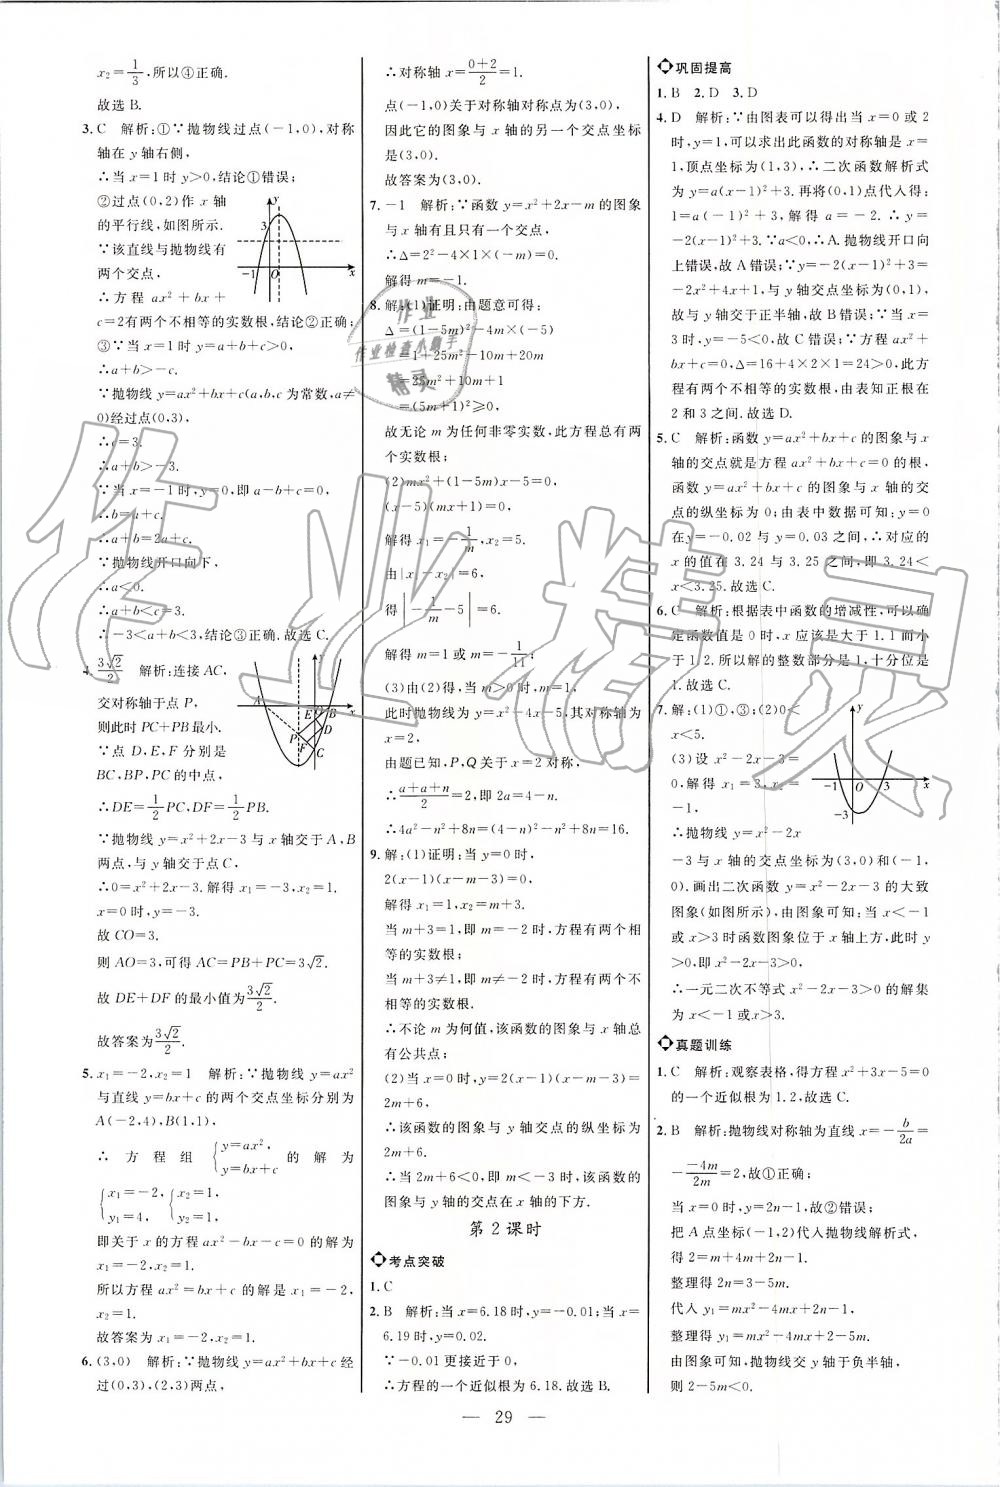 x₂=1/3,所以④正确.
故选 B.
3. C 解析:①∵抛物线过点(-1,0),对称
轴在 y 轴右侧,
∴当 x=1 时 y>0,结论①错误;
②过点(0,2)作 x 轴
的平行线,如图所示.
∵该直线与抛物线有
两个交点,
∴方程 ax²+bx+
c=2有两个不相等的实数根,结论②正确;
③∵当 x=1 时,y=a+b+c>0,
∴a+b>-c.
∵抛物线 y=ax²+bx+c(a,b,c 为常数,a≠
0)经过点(0,3),
∴c=3.
∴a+b>-3.
∵当 x=-1 时,y=0,即 a-b+c=0,
∴b=a+c.
∴a+b=2a+c.
∵抛物线开口向下,
∴a<0.
∴a+b<c=3.
∴-3<a+b<3,结论③正确.故选 C.
y
3
-1
O
x
4. 3√2/2 解析:连接 AC,
交对称轴于点 P,
则此时 PC+PB 最小.
∵点 D、E、F 分别是
BC,BP,PC 的中点,
∴DE=1/2PC,DF=1/2PB.
∵抛物线 y=x²+2x-3 与 x 轴交于 A,B
两点,与 y 轴交于点 C,
∴0=x²+2x-3.解得 x₁=-3,x₂=1.
x=0时,y=-3.
故 CO=3.
则 AO=3,可得 AC=PB+PC=3√2.
故 DE+DF 的最小值为3√2/2.
故答案为3√2/2.
y
A
O
B
x
E
D
P
F
C
5. x₁=-2,x₂=1 解析:∵抛物线 y=ax²
与直线 y=bx+c 的两个交点坐标分别为
A(-2,4),B(1,1),
∴ 方程组 {y=ax², y=bx+c 的解为
{x₁=-2, y₁=4, {x₂=1, y₂=1,
即关于 x 的方程 ax²-bx-c=0 的解为
x₁=-2,x₂=1.
所以方程 ax²=bx+c 的解是 x₁=-2,
x₂=1.
故答案为 x₁=-2,x₂=1.
6. (3,0) 解析:∵抛物线 y=ax²+bx+c 经
过(0,3),(2,3)两点,
∴对称轴 x=(0+2)/2=1.
点(-1,0)关于对称轴对称点为(3,0),
因此它的图象与 x 轴的另一个交点坐标
是(3,0).
故答案为(3,0).
7. -1 解析:∵函数 y=x²+2x-m 的图象
与 x 轴有且只有一个交点,
∴Δ=2²-4×1×(-m)=0.
解得 m=-1.
8. 解:(1)证明:由题意可得:
Δ=(1-5m)²-4m×(-5)
=1+25m²-10m+20m
=25m²+10m+1
=(5m+1)²≥0,
故无论 m 为任何非零实数,此方程总有两
个实数根;
(2)mx²+(1-5m)x-5=0,
(x-5)(mx+1)=0,
解得 x₁=-1/m,x₂=5.
由|x₁-x₂|=6,
得|-1/m-5|=6.
解得 m=1 或 m=-1/11;
(3)由(2)得,当 m>0 时,m=1,
此时抛物线为 y=x²-4x-5,其对称轴为
x=2,
由题已知,P,Q关于 x=2 对称,
∴(a+a+n)/2=2,即 2a=4-n.
∴4a²-n²+8n=(4-n)²-n²+8n=16.
9. 解:(1)证明:当 y=0 时,
2(x-1)(x-m-3)=0.
解得 x₁=1,x₂=m+3.
当 m+3=1,即 m=-2 时,方程有两个相
等的实数根;
当 m+3≠1,即 m≠-2 时,方程有两个不
相等的实数根.
∴不论 m 为何值,该函数的图象与 x 轴总
有公共点;
(2)当 x=0 时,y=2(x-1)(x-m-3)=
2m+6,
∴该函数的图象与 y 轴交点的纵坐标为
2m+6.
∴当 2m+6<0,即 m<-3 时,该函数的
图象与 y 轴的交点在 x 轴的下方.
第 2 课时
考点突破
1. C
2. B 解析:当 x=6.18 时,y=-0.01;当 x=
6.19 时,y=0.02.
∵-0.01 更接近于 0,
∴方程的一个近似根为 6.18.故选 B.
巩固提高
1. B 2. D 3. D
4. D 解析:∵由图表可以得出当 x=0 或 2
时,y=1,可以求出此函数的对称轴是 x=
1,顶点坐标为(1,3),∴二次函数解析式
为 y=a(x-1)²+3.再将(0,1)点代入得:
1=a(-1)²+3,解得 a=-2.∴y=
-2(x-1)²+3.∵a<0,∴A.抛物线开口向
上错误,故 A 错误;∵y=-2(x-1)²+3=
-2x²+4x+1,与 y 轴交点坐标为(0,1),
故与 y 轴交于正半轴,故 B 错误;∵x=
3 时,y=-5<0,故 C 错误;∵方程 ax²+
bx+c=0,Δ=16+4×2×1=24>0,此方
程有两个不相等的实数根,由表知正根在
2 和 3 之间.故选 D.
5. C 解析:函数 y=ax²+bx+c 的图象与 x
轴的交点就是方程 ax²+bx+c=0 的根,
函数 y=ax²+bx+c 的图象与 x 轴的交
点的纵坐标为 0;由表中数据可知:y=0
在 y=-0.02 与 y=0.03 之间,∴对应的
x 的值在 3.24 与 3.25 之间,即 3.24<
x<3.25.故选 C.
6. C 解析:根据表中函数的增减性,可以确
定函数值是 0 时,x 应该是大于 1.1 而小
于 1.2.所以解的整数部分是 1,十分位是
1.故选 C.
7. 解:(1)①,③;(2)0<
x<5.
(3)设 x²-2x-3=
0,解得 x₁=3,x₂=
-1,
∴抛物线 y=x²-2x
-3 与 x 轴的交点坐标为(3,0)和(-1,
0).画出二次函数 y=x²-2x-3 的大致
图象(如图所示),由图象可知:当 x<-1
或 x>3 时函数图象位于 x 轴上方,此时 y
>0,即 x²-2x-3>0,
∴一元二次不等式 x²-2x-3>0 的解集
为 x<-1 或 x>3.
y
-1
O
3
x
-3
真题训练
1. C 解析:观察表格,得方程 x²+3x-5=0
的一个近似根为 1.2,故选 C.
2. B 解析:抛物线对称轴为直线 x=-b/2a=
-(-4m)/2m=2,故①正确;
当 x=0 时,y=2n-1,故②错误;
把 A 点坐标(-1,2)代入抛物线解析式,
得 2=m+4m+2n-1,
整理得 2n=3-5m.
代入 y₁=mx²-4mx+2n-1,
整理得 y₁=mx²-4mx+2-5m.
由图象可知,抛物线交 y 轴于负半轴,
则 2-5m<0.
— 29 —
作业
作业检查小助手
精灵
作业精灵